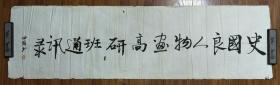 史國良人物畫高研班通訊录